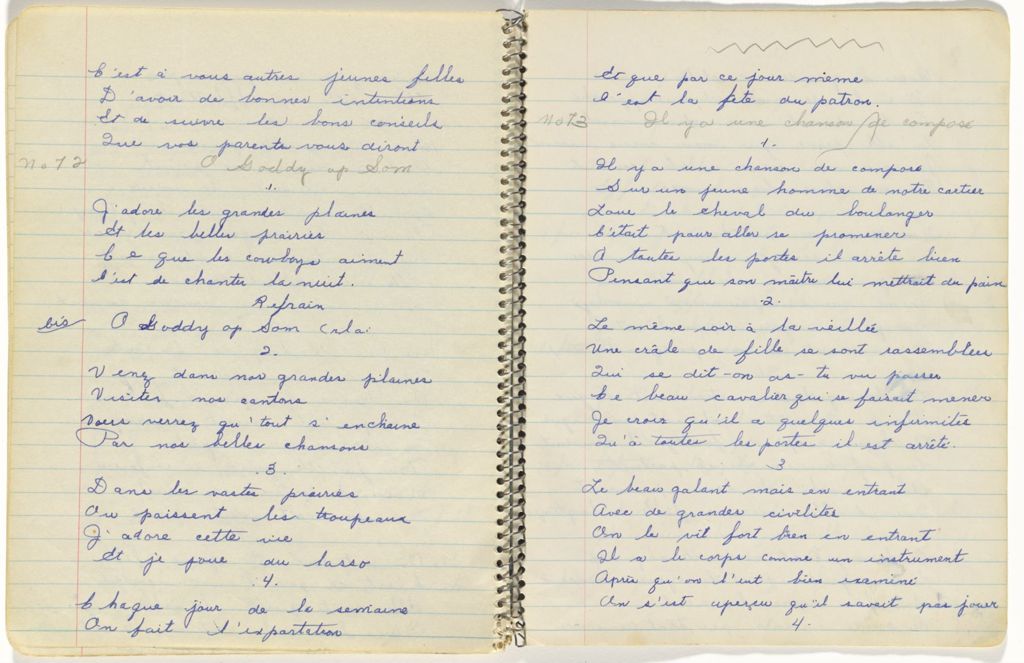 C'est à vous autres jeunes filles
D'avoir de bonnes intentions
Et de suivre les bons conseils
Que vos parents vous diront
No 12 O Goddy op Som
1.
J'adore les grandes plaines
Et les belles prairies
Ce que les cowboys aiment
C'est de chanter la nuit.
Refrain
bis O Goddy op Som (rla:
2.
Venez dans nos grandes plaines
Visiter nos cantons
Vous verrez qu'tout s'enchaine
Par nos belles chansons
.3.
Dans les vastes prairies
Ou paissent les troupeaux
J'adore cette vie
Et je joue du lasso
.4.
Chaque jour de la semaine
On fait l'exportation
Et que par ce jour mieme
C'est la fete du patron.
No 13 Il y a une chanson de compose
1.
Il y a une chanson de compose
Sur un jeune homme de notre cartier
Loue le cheval du boulanger
C'était pour aller se promener
A toutes les portes il arrête bien
Pensant que son maître lui mettrait du pain
.2.
Le même soir à la veillée
Une crâle de fille se sont rassemblees
Qui se dit-on as-tu vu passer
Ce beau cavalier qui se faisait mener
Je crois qu'il a quelques infirmites
Qu'à toutes les portes il est arrêté.
3
Le beau galant mais en entrant
Avec de grandes civilites
On le vit fort bien en entrant
Il a le corps comme un instrument
Apris qu'on l'eut bien examiné
On s'est aperçu qu'il savait pas jouer
4.